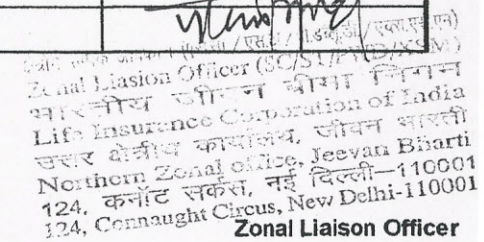 Zonal Liasion Officer (SC/ST/PWD/XSM)
भारतीय जीवन बीमा निगम
Life Insurance Corporation of India
उत्तर क्षेत्रीय कार्यालय, जीवन भारती
Northern Zonal office, Jeevan Bharti
124, कनॉट सर्कस, नई दिल्ली–110001
124, Connaught Circus, New Delhi-110001
Zonal Liaison Officer